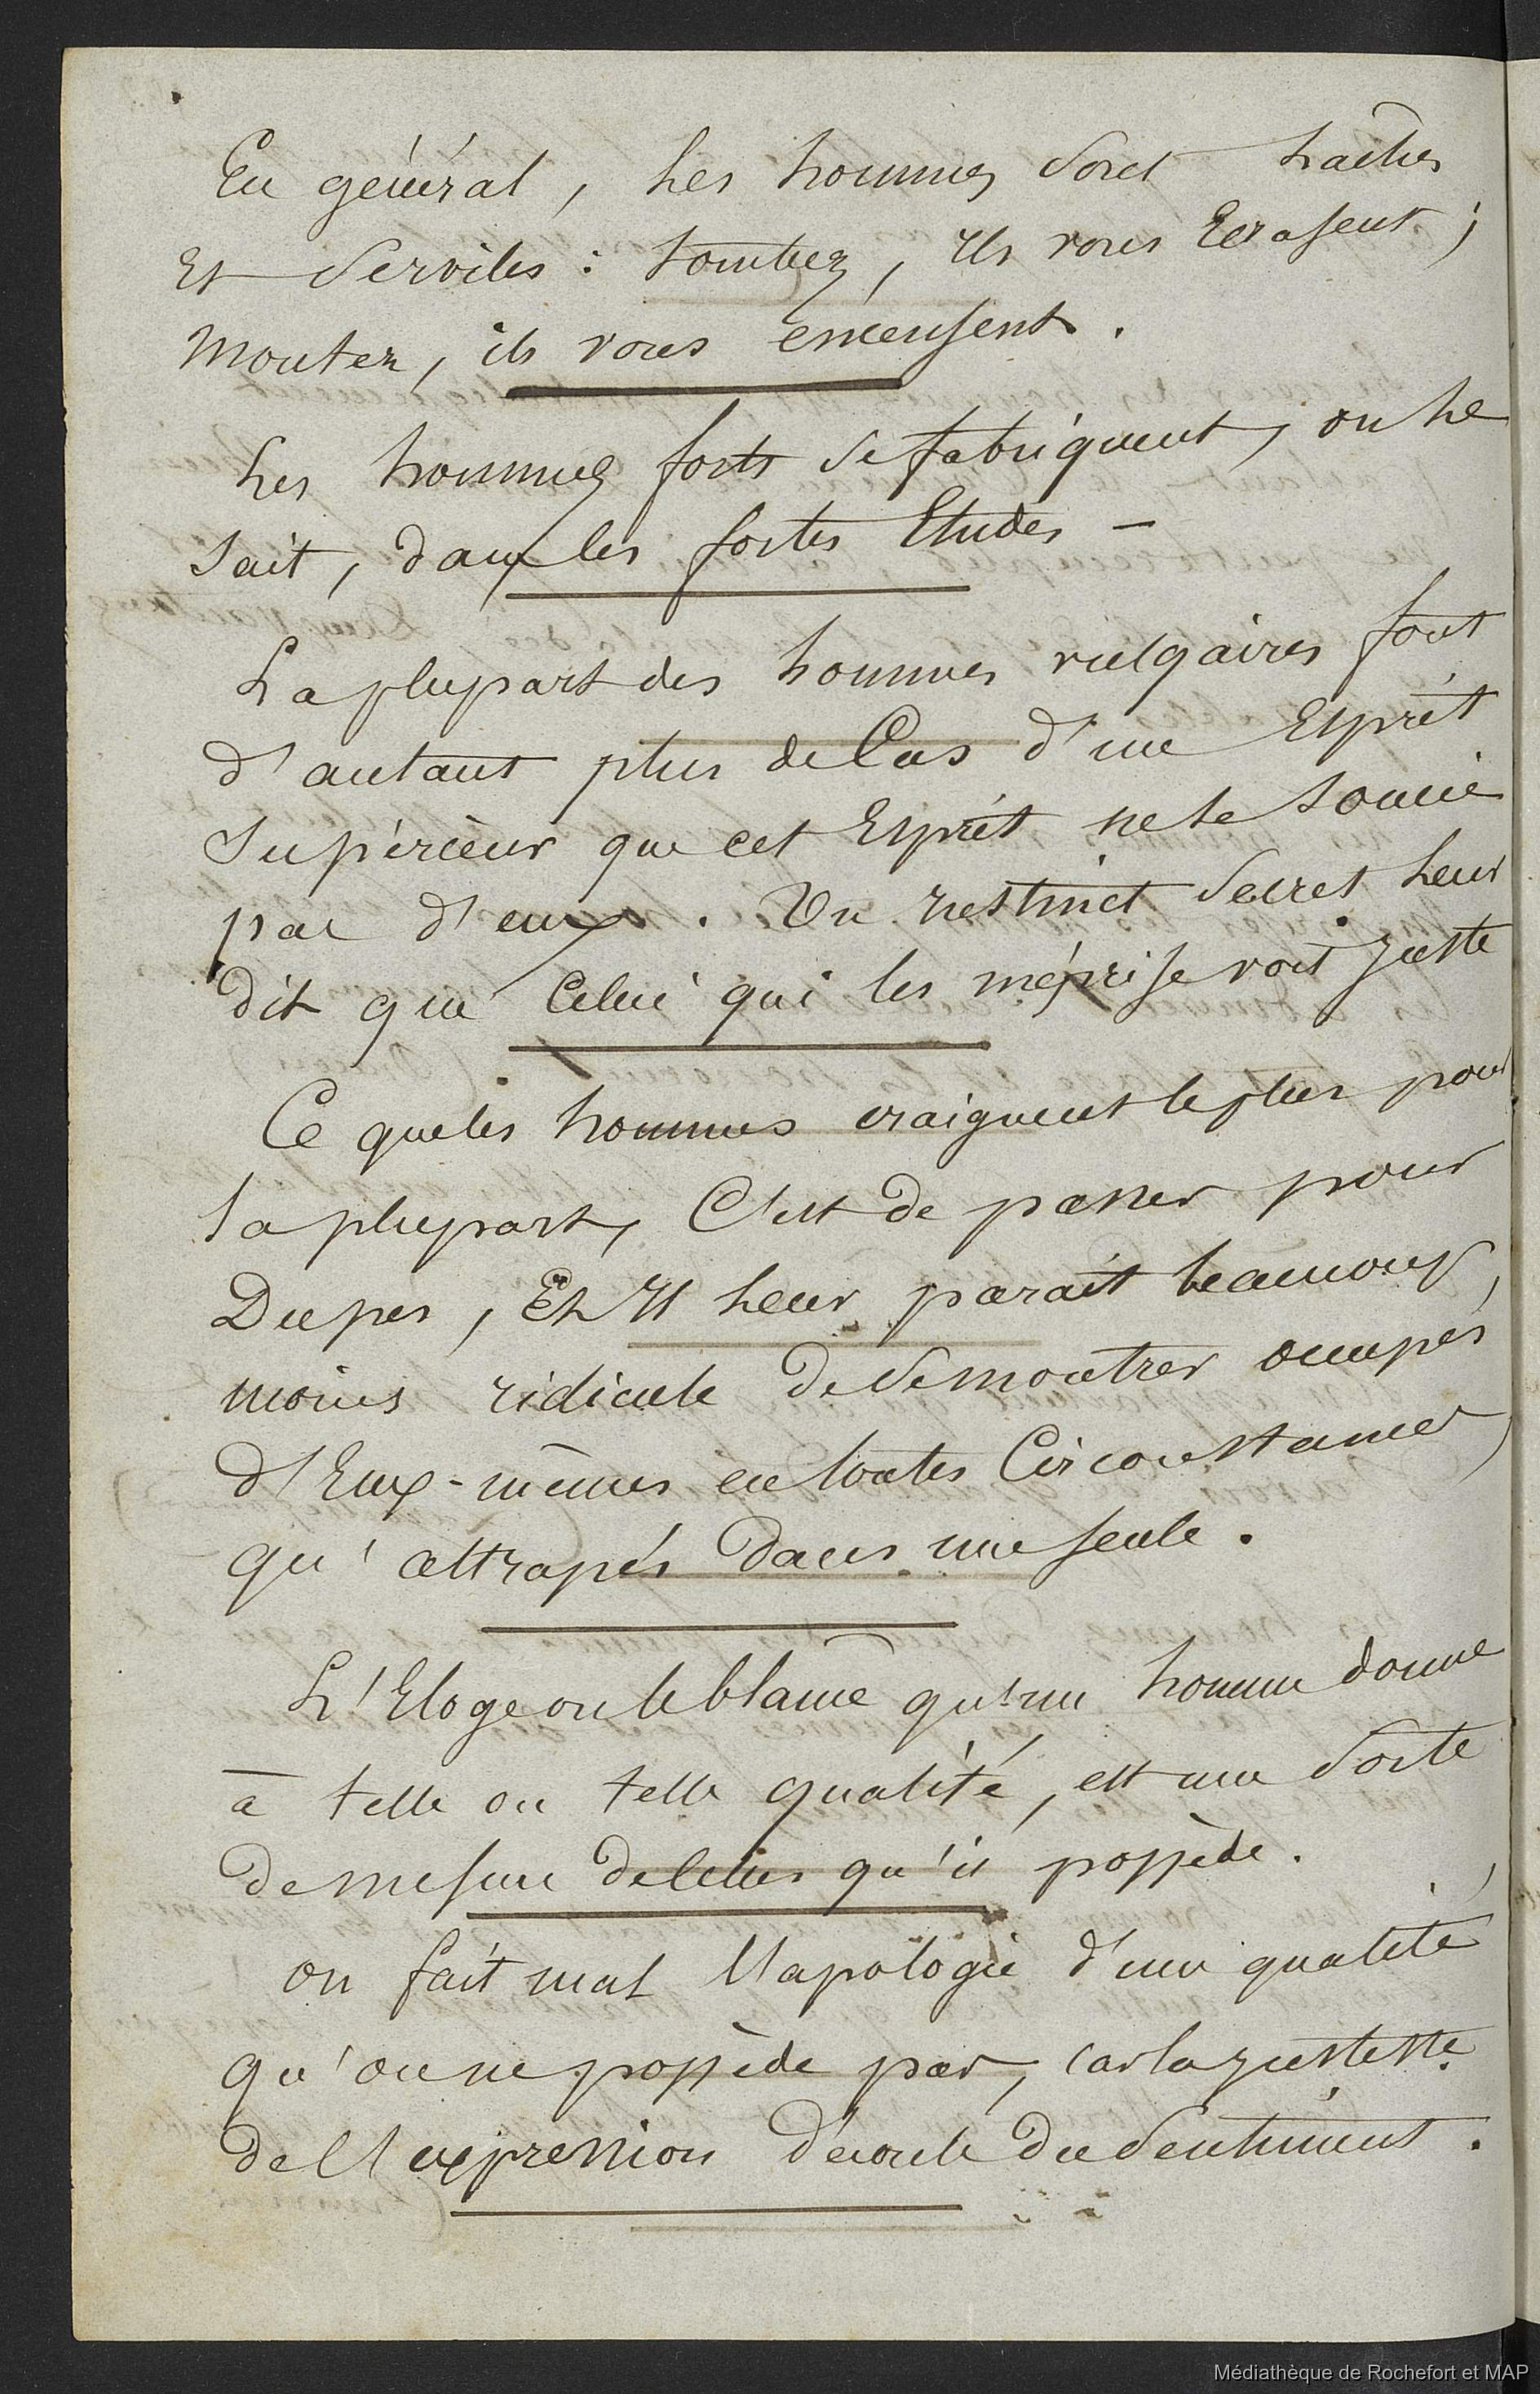 En général, les hommes sont lâches
Et Serviles : tombez, Ils vous Ecrasent ;
Montez, ils vous encensent.
Les hommes forts se fabriquent, on le
sait, dans les fortes Etudes -
La plupart des hommes vulgaires font
d'autant plus de Cas d'un Esprit
Supérieur que cet Esprit ne se soucie
pas d'eux. Un instinct Secret leur
dit que Celui qui les méprise voit juste
Ce que les hommes craignent le plus pour
la plupart, C'est de passer pour
Dupes, Et Il leur parait beaucoup
moins ridicule de se montrer occupés
d'Eux-mêmes en toutes Circonstances,
qu'attrapés dans une seule.
L'Eloge ou le blâme qu'un homme donne
à telle ou telle qualité, est une Sorte
de mesure de celles qu'il possède.
on fait mal l'apologie d'une qualité
qu'on ne possède pas, car la justesse
de l'expression découle du Sentiment.
Médiathèque de Rochefort et MAP